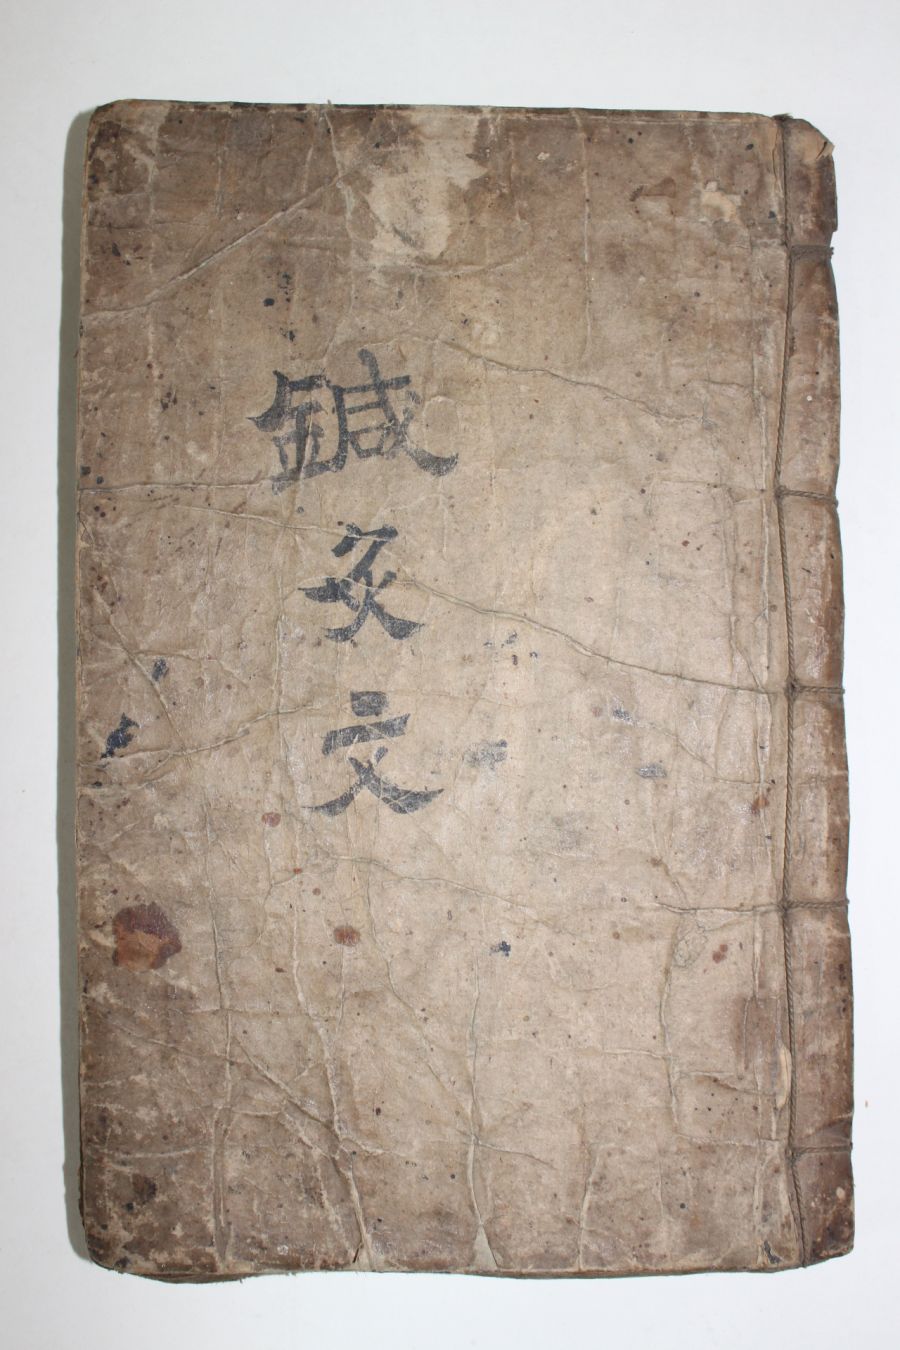 鍼灸文